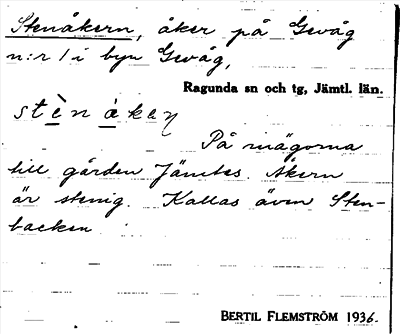 Stenåkern, åker på Gevåg
n:r 1 i byn Gevåg,
Ragunda sn och tg, Jämtl. län.
stènákeɳ
På mägorna
till gården Jämtes. Åkern
är stenig. Kallas även Sten-
backen.
BERTIL FLEMSTRÖM 1936.